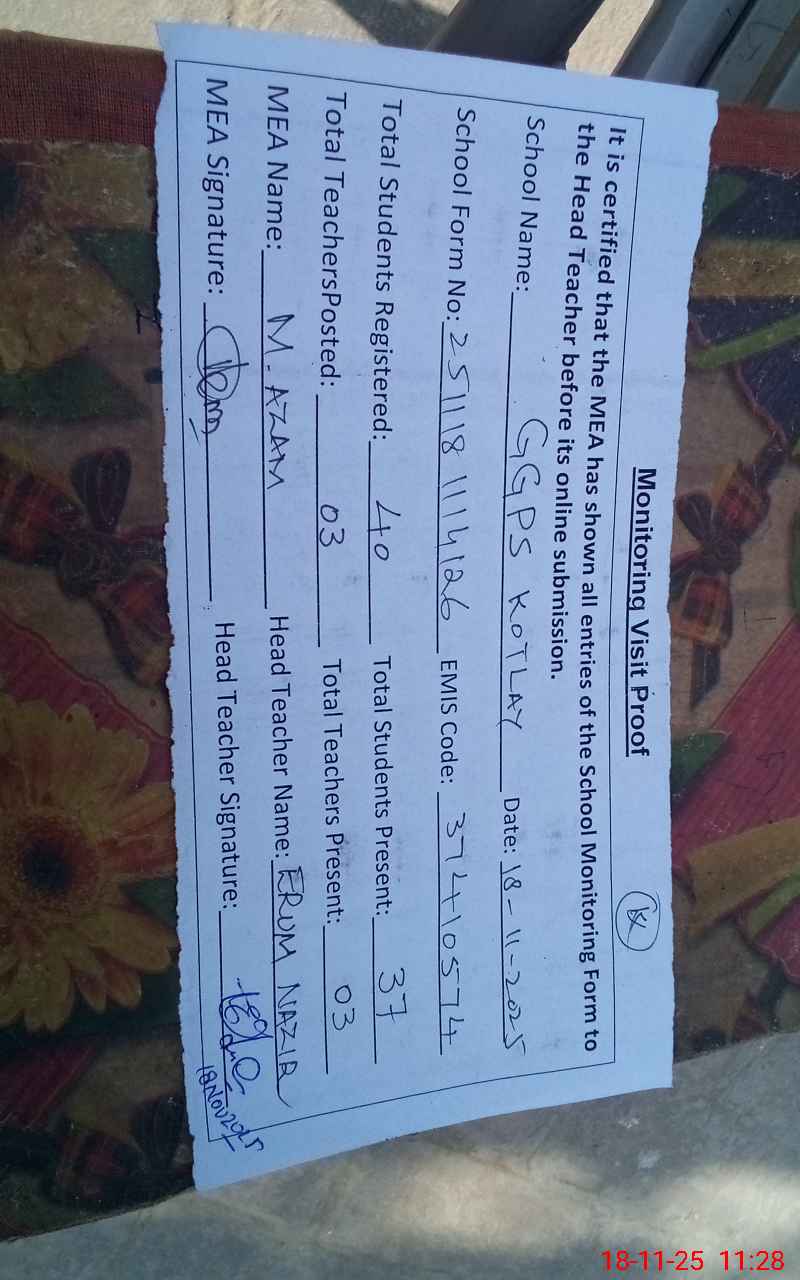 Monitoring Visit Proof
It is certified that the MEA has shown all entries of the School Monitoring Form to
the Head Teacher before its online submission.
School Name: GGPS KOTLAY Date: 18-11-2025
School Form No: 251118 1114126 EMIS Code: 37410574
Total Students Registered: 40 Total Students Present: 37
Total TeachersPosted: 03 Total Teachers Present: 03
MEA Name: M. AZAM Head Teacher Name: ERUM NAZIR
MEA Signature: Head Teacher Signature:
18 NOV 2025
18-11-25 11:28